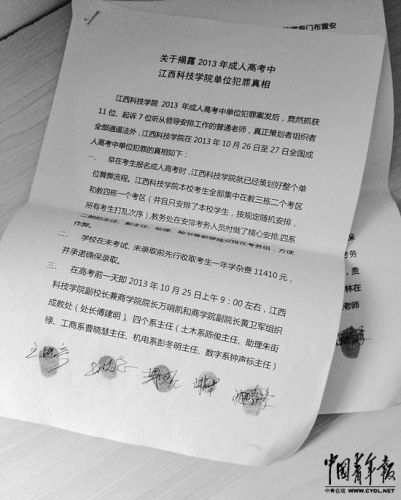 关于揭露 2013 年成人高考中
江西科技学院单位犯罪真相
江西科技学院 2013 年成人高考中单位犯罪案发后，竟然抓获
11 位、起诉 7 位听从领导安排工作的普通老师，真正策划者组织者
全部逍遥法外，江西科技学院在 2013 年 10 月 26 日至 27 日全国成
人高考中单位犯罪的真相如下：
一、 早在考生报名成人高考时，江西科技学院就已经策划好整个单
位舞弊流程。江西科技学院本校考生全部集中在教三栋二个考区
和教四栋一个考区（并且只安排了本校学生，按规定随机安排，
所有考生打乱次序），教务处在安排考务人员时做了精心安排，四系
作弊。
二、 学校在未考试、未录取前先行收取考生一年学杂费 11410 元，
并承诺确保录取。
三、 在高考前一天即 2013 年 10 月 25 日上午 9：00 左右，江西
科技学院副校长兼商学院院长万晴凯和商学院副院长黄卫军组织
成教处（处长傅建明）四个系主任（土木系陈俊主任、助理朱街
禄、工商系曹晓慧主任、机电系彭冬明主任、数字系钟声标主任）
中国青年报
中青在线 WWW.CYOL.NET